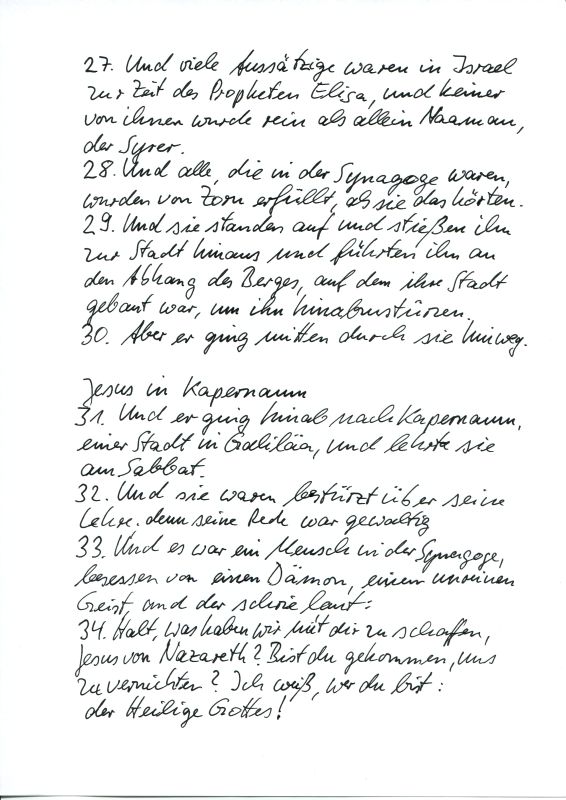 27. Und viele Aussätzige waren in Israel
zur Zeit des Propheten Elisa, und keiner
von ihnen wurde rein als allein Naaman,
der Syrer.
28. Und alle, die in der Synagoge waren,
wurden von Zorn erfüllt, als sie das hörten.
29. Und sie standen auf und stießen ihn
zur Stadt hinaus und führten ihn an
den Abhang des Berges, auf dem ihre Stadt
gebaut war, um ihn hinabzustürzen.
30. Aber er ging mitten durch sie hinweg.
Jesus in Kapernaum
31. Und er ging hinab nach Kapernaum,
einer Stadt in Galiläa, und lehrte sie
am Sabbat.
32. Und sie waren bestürzt über seine
Lehre. denn seine Rede war gewaltig
33. Und es war ein Mensch in der Synagoge,
besessen von einen Dämon, einem unreinen
Geist und der schrie laut:
34. Halt, was haben wir mit dir zu schaffen,
Jesus von Nazareth? Bist du gekommen, uns
zu vernichten? Ich weiß, wer du bist:
der Heilige Gottes!